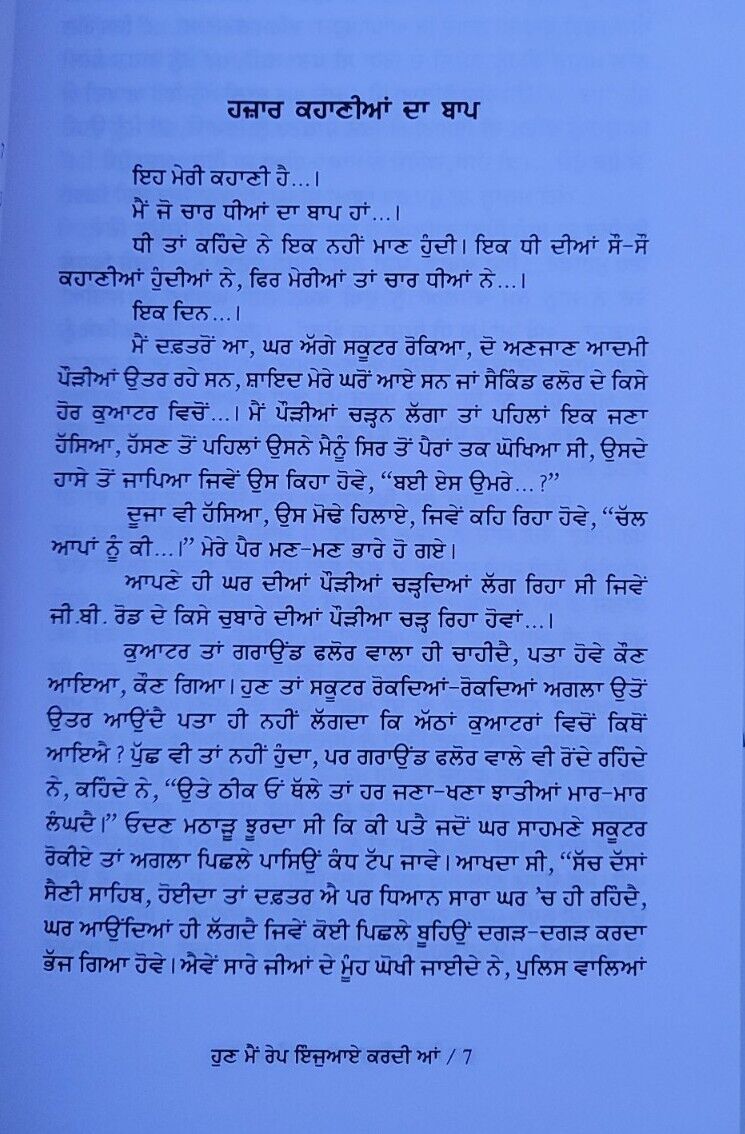 ਹਜ਼ਾਰ ਕਹਾਣੀਆਂ ਦਾ ਬਾਪ
ਇਹ ਮੇਰੀ ਕਹਾਣੀ ਹੈ...।
ਮੈਂ ਜੋ ਚਾਰ ਧੀਆਂ ਦਾ ਬਾਪ ਹਾਂ...।
ਧੀ ਤਾਂ ਕਹਿੰਦੇ ਨੇ ਇਕ ਨਹੀਂ ਮਾਣ ਹੁੰਦੀ। ਇਕ ਧੀ ਦੀਆਂ ਸੌ-ਸੌ
ਕਹਾਣੀਆਂ ਹੁੰਦੀਆਂ ਨੇ, ਫਿਰ ਮੇਰੀਆਂ ਤਾਂ ਚਾਰ ਧੀਆਂ ਨੇ...।
ਇਕ ਦਿਨ...।
ਮੈਂ ਦਫ਼ਤਰੋਂ ਆ, ਘਰ ਅੱਗੇ ਸਕੂਟਰ ਰੋਕਿਆ, ਦੋ ਅਣਜਾਣ ਆਦਮੀ
ਪੌੜੀਆਂ ਉਤਰ ਰਹੇ ਸਨ, ਸ਼ਾਇਦ ਮੇਰੇ ਘਰੋਂ ਆਏ ਸਨ ਜਾਂ ਸੈਕਿੰਡ ਫਲੋਰ ਦੇ ਕਿਸੇ
ਹੋਰ ਕੁਆਟਰ ਵਿਚੋਂ...। ਮੈਂ ਪੌੜੀਆਂ ਚੜ੍ਹਨ ਲੱਗਾ ਤਾਂ ਪਹਿਲਾਂ ਇਕ ਜਣਾ
ਹੱਸਿਆ, ਹੱਸਣ ਤੋਂ ਪਹਿਲਾਂ ਉਸਨੇ ਮੈਨੂੰ ਸਿਰ ਤੋਂ ਪੈਰਾਂ ਤਕ ਘੋਖਿਆ ਸੀ, ਉਸਦੇ
ਹਾਸੇ ਤੋਂ ਜਾਪਿਆ ਜਿਵੇਂ ਉਸ ਕਿਹਾ ਹੋਵੇ, “ਬਈ ਏਸ ਉਮਰੇ...?”
ਦੂਜਾ ਵੀ ਹੱਸਿਆ, ਉਸ ਮੋਢੇ ਹਿਲਾਏ, ਜਿਵੇਂ ਕਹਿ ਰਿਹਾ ਹੋਵੇ, “ਚੱਲ
ਆਪਾਂ ਨੂੰ ਕੀ...।” ਮੇਰੇ ਪੈਰ ਮਣ-ਮਣ ਭਾਰੇ ਹੋ ਗਏ।
ਆਪਣੇ ਹੀ ਘਰ ਦੀਆਂ ਪੌੜੀਆਂ ਚੜ੍ਹਦਿਆਂ ਲੱਗ ਰਿਹਾ ਸੀ ਜਿਵੇਂ
ਜੀ.ਬੀ. ਰੋਡ ਦੇ ਕਿਸੇ ਚੁਬਾਰੇ ਦੀਆਂ ਪੌੜੀਆ ਚੜ੍ਹ ਰਿਹਾ ਹੋਵਾਂ...।
ਕੁਆਟਰ ਤਾਂ ਗਰਾਉਂਡ ਫਲੋਰ ਵਾਲਾ ਹੀ ਚਾਹੀਦੈ, ਪਤਾ ਹੋਵੇ ਕੌਣ
ਆਇਆ, ਕੌਣ ਗਿਆ। ਹੁਣ ਤਾਂ ਸਕੂਟਰ ਰੋਕਦਿਆਂ-ਰੋਕਦਿਆਂ ਅਗਲਾ ਉਤੋਂ
ਉਤਰ ਆਉਂਦੈ ਪਤਾ ਹੀ ਨਹੀਂ ਲੱਗਦਾ ਕਿ ਅੱਠਾਂ ਕੁਆਟਰਾਂ ਵਿਚੋਂ ਕਿਥੋਂ
ਆਇਐ? ਪੁੱਛ ਵੀ ਤਾਂ ਨਹੀਂ ਹੁੰਦਾ, ਪਰ ਗਰਾਉਂਡ ਫਲੋਰ ਵਾਲੇ ਵੀ ਰੋਂਦੇ ਰਹਿੰਦੇ
ਨੇ, ਕਹਿੰਦੇ ਨੇ, “ਉਤੇ ਠੀਕ ਓਂ ਥੱਲੇ ਤਾਂ ਹਰ ਜਣਾ-ਖਣਾ ਝਾਤੀਆਂ ਮਾਰ-ਮਾਰ
ਲੰਘਦੈ।” ਓਦਣ ਮਠਾੜੂ ਝੂਰਦਾ ਸੀ ਕਿ ਕੀ ਪਤੈ ਜਦੋਂ ਘਰ ਸਾਹਮਣੇ ਸਕੂਟਰ
ਰੋਕੀਏ ਤਾਂ ਅਗਲਾ ਪਿਛਲੇ ਪਾਸਿਉਂ ਕੰਧ ਟੱਪ ਜਾਵੇ। ਆਖਦਾ ਸੀ, “ਸੱਚ ਦੱਸਾਂ
ਸੈਣੀ ਸਾਹਿਬ, ਹੋਈਦਾ ਤਾਂ ਦਫ਼ਤਰ ਐ ਪਰ ਧਿਆਨ ਸਾਰਾ ਘਰ ’ਚ ਹੀ ਰਹਿੰਦੈ,
ਘਰ ਆਉਂਦਿਆਂ ਹੀ ਲੱਗਦੈ ਜਿਵੇਂ ਕੋਈ ਪਿਛਲੇ ਬੂਹਿਉਂ ਦਗੜ-ਦਗੜ ਕਰਦਾ
ਭੱਜ ਗਿਆ ਹੋਵੇ। ਐਵੇਂ ਸਾਰੇ ਜੀਆਂ ਦੇ ਮੂੰਹ ਘੋਖੀ ਜਾਈਦੇ ਨੇ, ਪੁਲਿਸ ਵਾਲਿਆਂ
ਹੁਣ ਮੈਂ ਰੇਪ ਇੰਜੁਆਏ ਕਰਦੀ ਆਂ / 7